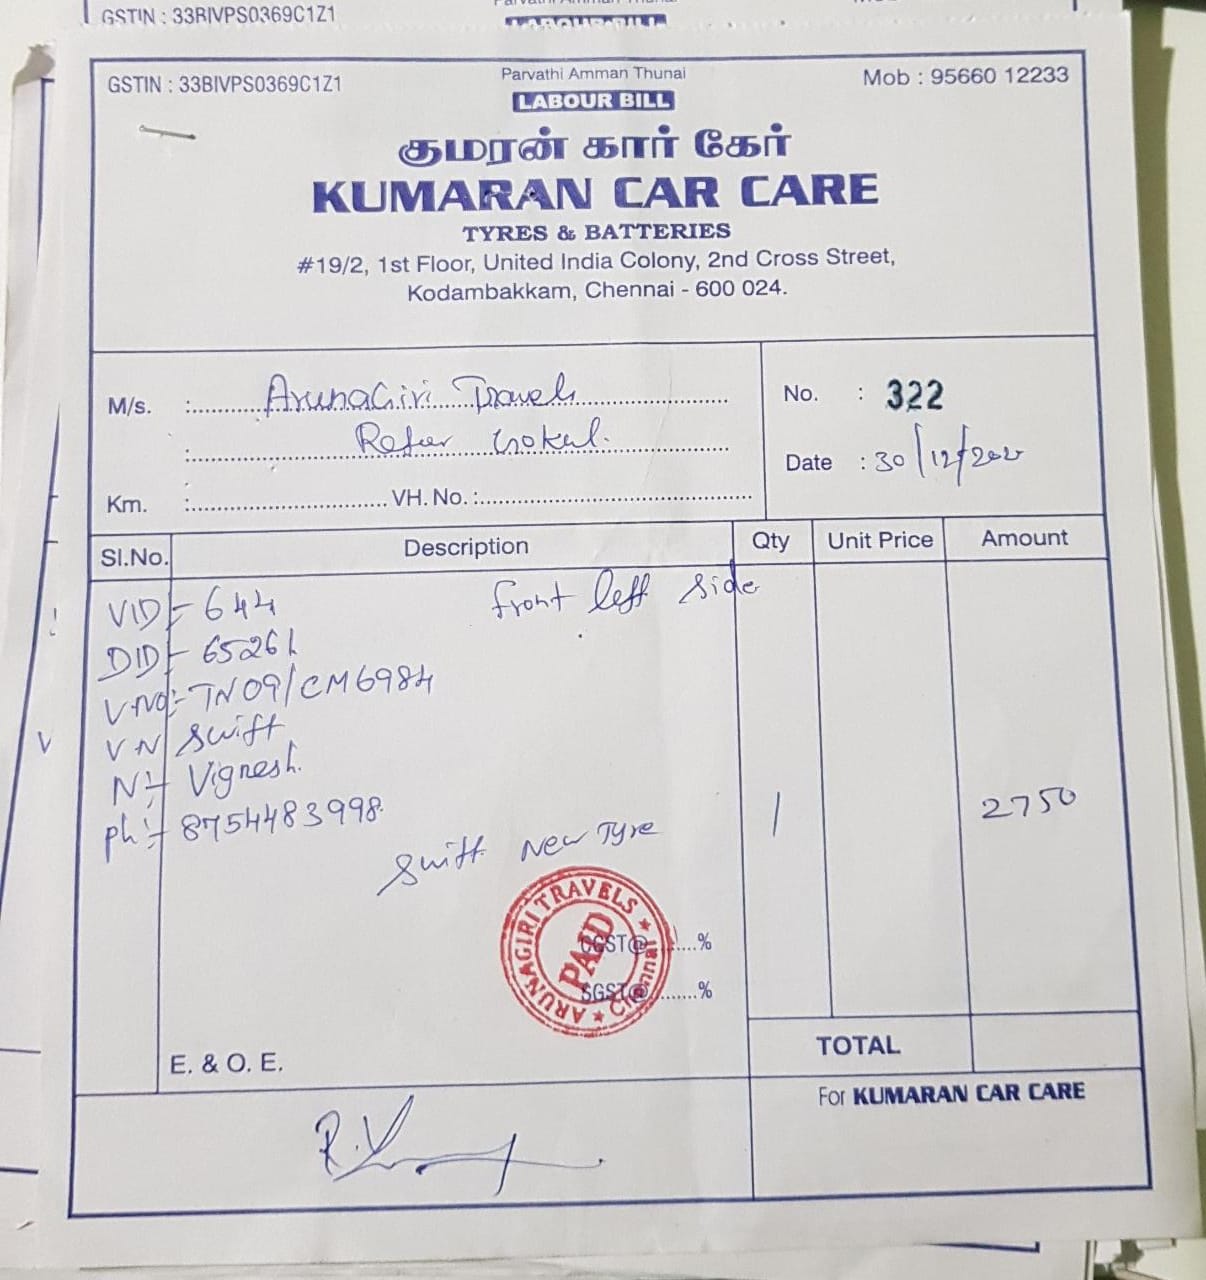 GSTIN : 33BIVPS0369C1Z1
LABOUR BILL
GSTIN : 33BIVPS0369C1Z1
Parvathi Amman Thunai
Mob : 95660 12233
LABOUR BILL
குமரன் கார் கேர்
KUMARAN CAR CARE
TYRES & BATTERIES
#19/2, 1st Floor, United India Colony, 2nd Cross Street,
Kodambakkam, Chennai - 600 024.
M/s. : ArunaGiri Travels
: Refer Gokul.
No. : 322
Date : 30/12/202
Km. : VH. No. :
Sl.No. Description Qty Unit Price Amount
front left side
VID - 644
DID - 65261
V.No:- TN09/CM6984
VN Swift
N:- Vignesh.
ph:- 8754483998.
Swift New Tyre 1 2750
ARUNAGIRI TRAVELS
PAID
CGST@.......%
SGST@.......%
TOTAL
E. & O. E.
For KUMARAN CAR CARE